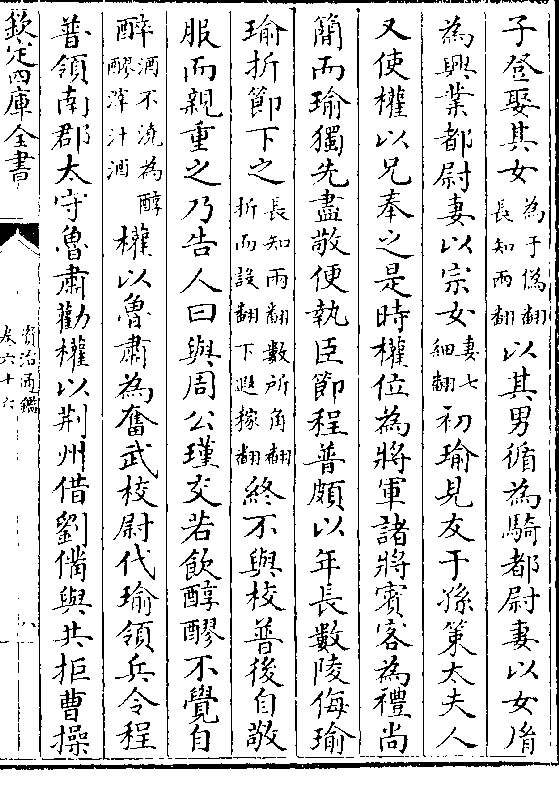 子登娶其女為子偽翻長知兩翻以其男循為騎都尉妻以女㣧
為興業都尉妻以宗女妻七細翻初瑜見友于孫策太夫人
又使權以兄奉之是時權位為將軍諸將賓客為禮尚
簡而瑜獨先盡敬便執臣節程普頗以年長數陵侮瑜
瑜折節下之長知兩翻數所角翻折而設翻下遐稼翻終不與校普後自敬
服而親重之乃告人曰與周公瑾交若飲醇醪不覺自
醉酒不澆為醇醪滓汁酒權以魯肅為奮武校尉代瑜領兵令程
普領南郡太守魯肅勸權以荆州借劉備與共拒曹操
欽定四庫全書
資治通鑑
卷六十六
八